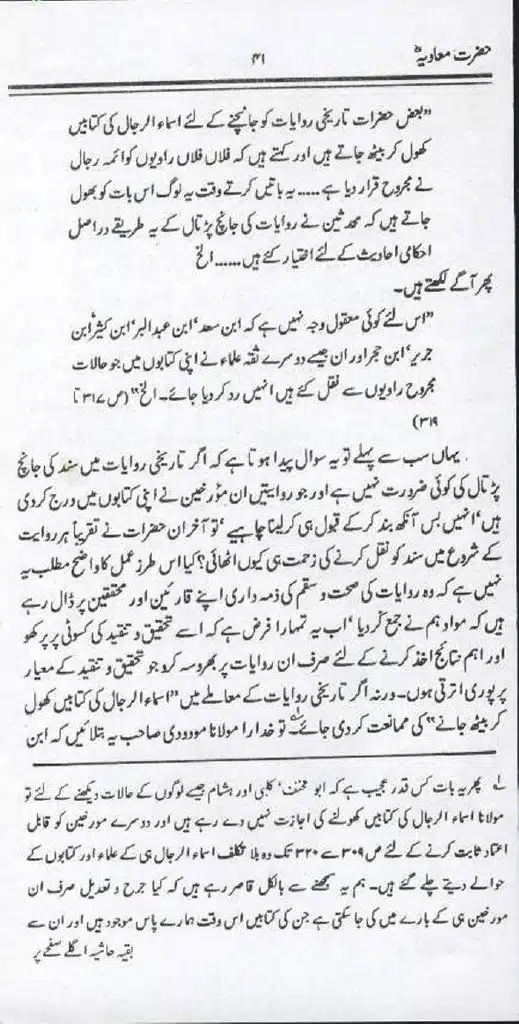 حضرت معاویہؓ
۴۱
"بعض حضرات تاریخی روایات کو جانچنے کے لئے اسماء الرجال کی کتابیں
کھول کر بیٹھ جاتے ہیں اور کہتے ہیں کہ فلاں فلاں راویوں کو ائمہ رجال
نے مجروح قرار دیا ہے ..... یہ باتیں کرتے وقت یہ لوگ اس بات کو بھول
جاتے ہیں کہ محدثین نے روایات کی جانچ پڑتال کے یہ طریقے دراصل
احکامی احادیث کے لئے اختیار کئے ہیں ...... الخ
پھر آگے لکھتے ہیں۔
"اس لئے کوئی معقول وجہ نہیں ہے کہ ابن سعد' ابن عبدالبر' ابن کثیر' ابن
جریر' ابن حجر اور ان جیسے دوسرے ثقہ علماء نے اپنی کتابوں میں جو حالات
مجروح راویوں سے نقل کئے ہیں انہیں رد کر دیا جائے۔ الخ" (ص ۳۱۷ تا
۳۱۹)
یہاں سب سے پہلے تو یہ سوال پیدا ہوتا ہے کہ اگر تاریخی روایات میں سند کی جانچ
پڑتال کی کوئی ضرورت نہیں ہے اور جو روایتیں ان مؤرخین نے اپنی کتابوں میں درج کردی
ہیں' انہیں بس آنکھ بند کر کے قبول ہی کر لینا چاہیے' تو آخر ان حضرات نے تقریباً ہر روایت
کے شروع میں سند کو نقل کرنے کی زحمت ہی کیوں اٹھائی؟ کیا اس طرز عمل کا واضح مطلب یہ
نہیں ہے کہ وہ روایات کی صحت و سقم کی ذمہ داری اپنے قارئین اور محققین پر ڈال رہے
ہیں کہ مواد ہم نے جمع کر دیا' اب یہ تمہارا فرض ہے کہ اسے تحقیق و تنقید کی کسوٹی پر پرکھو
اور اہم نتائج اخذ کرنے کے لئے صرف ان روایات پر بھروسہ کرو جو تحقیق و تنقید کے معیار
پر پوری اترتی ہوں۔ ورنہ اگر تاریخی روایات کے معاملے میں "اسماء الرجال کی کتابیں کھول
کر بیٹھ جانے" کی ممانعت کردی جائے۔ لہ تو خدارا مولانا مودودی صاحب یہ بتلائیں کہ ابن
لہ پھر یہ بات کس قدر عجیب ہے کہ ابو مخنف' کلبی اور ہشام جیسے لوگوں کے حالات دیکھنے کے لئے تو
مولانا اسماء الرجال کی کتابیں کھولنے کی اجازت نہیں دے رہے ہیں اور دوسرے مورخین کو قابل
اعتماد ثابت کرنے کے لئے ص ۳۰۹ سے ۳۲۰ تک وہ بلا تکلف اسماء الرجال ہی کے علماء اور کتابوں کے
حوالے دیتے چلے گئے ہیں۔ ہم یہ سمجھنے سے بالکل قاصر رہے ہیں کہ کیا جرح و تعدیل صرف ان
مورخین ہی کے بارے میں کی جاسکتی ہے جن کی کتابیں اس وقت ہمارے پاس موجود ہیں اور ان سے
بقیہ حاشیہ اگلے صفحے پر